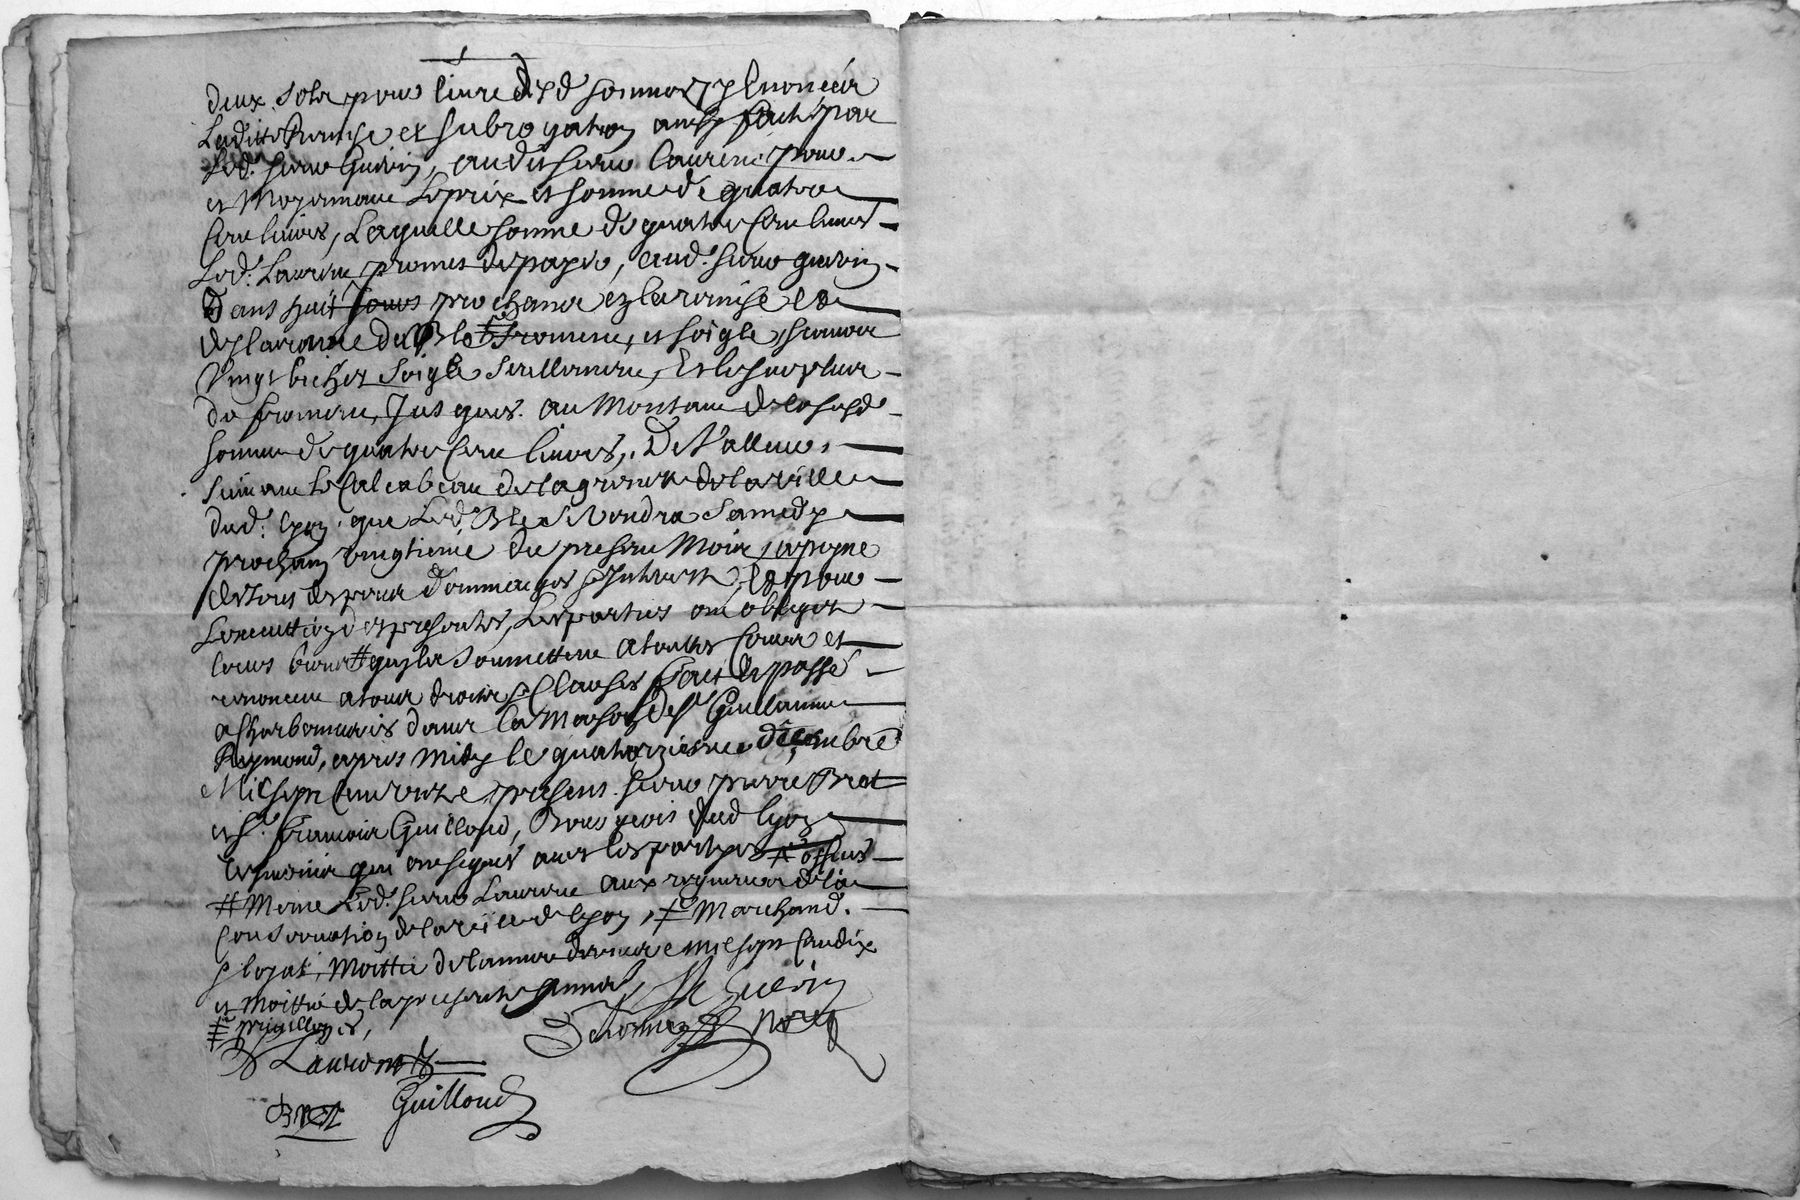 deux sols pour livre desd sommes, Enoncéé
Laditte Remise et subrogation ainsy faitte par
Led. sieur Guerin, audit sieur Laurent pour
et Moyennant Le prix et somme de quatre
Cent livres, Laquelle somme de quatre Cent livres
Led. Laurent promet de payer, aud. sieur guerin
Dans huit Jours prochains
du Bled froment, et soigle, scavoir
Vingt bichez soigle seullement, Et le surplus
de froment, Jusques au Montant de lasusd
somme de quatre Cent livres, De Valleur
suivant Le Calcabeau de la grenette de la ville
dud. lyon que Led Bled se Vendra samedy
prochain vingtieme du present Mois, a peyne
de tous despens dommages Interest, Et pour
L'execution des presentes, Les parties ont obligez
leurs biens # quy les soumettent a touttes Cours et
renoncent a tous droits Clauses fait et passé
a Charbonnieres dans La Maison de sr Guillaume
Raymond, apres Midy le quatorziesme decembre
Mil sept Cent onze, present sieur pierre Bret
et sr. francois Guilloud, Bourgeois dud lyon
tesmoins qui ont signés avec les partyes
# Meme Led. sieur Laurent aux rigueurs de la
Conservation de la ville de lyon, # Marchand.
Moittié de l'année derniere mil sept Cent dix
et Moittié de la presente Année, Guerin
Laurent
Bret Guilloud